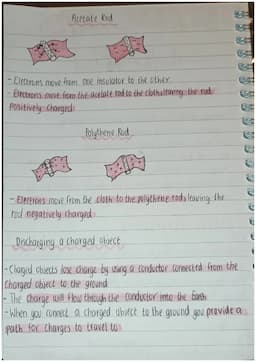 Acetate Rod
- Electrons move from one insulator to the other.
- Electrons move from the acetate rod to the cloth leaving the rod
positively charged.
Polythene Rod
- Electrons move from the cloth to the polythene rods leaving the
rod negatively charged.
Discharging a charged object
- Charged objects lose charge by using a conductor connected from the
charged object to the ground
- The charge will flow through the conductor into the Earth
- When you connect a charged object to the ground you provide a
path for charges to travel to.